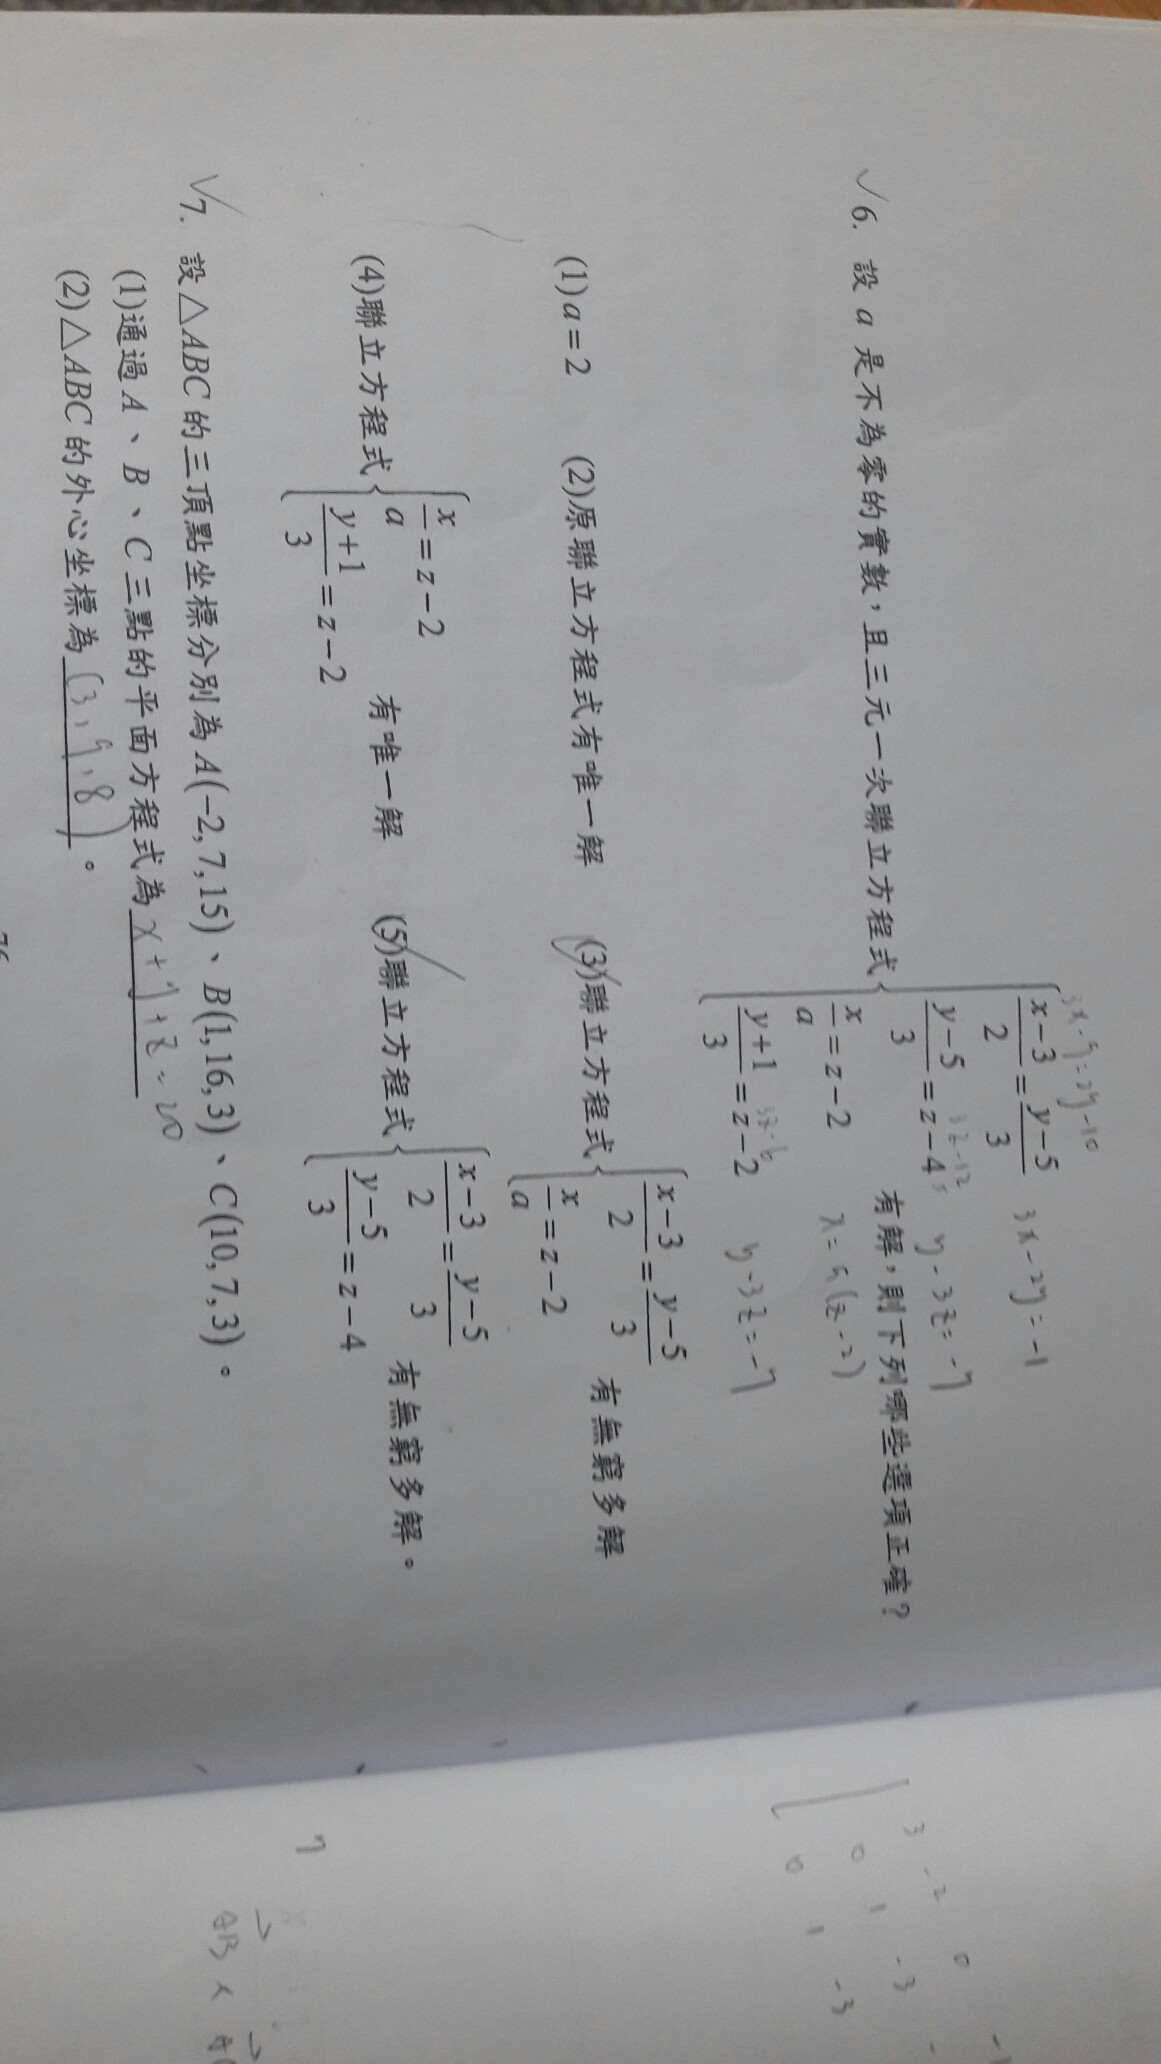 3x-9=2y-10
√6. 設 a 是不為零的實數，且三元一次聯立方程式 { (x-3)/2 = (y-5)/3 3x-2y=-1
(y-5)/3 = z-4 3z-12 y-3z=-7
x/a = z-2 x=a(z-2)
(y+1)/3 = z-2 3z-6 y-3z=-7
有解，則下列哪些選項正確？
(1) a=2 (2)原聯立方程式有唯一解 (3)聯立方程式 { (x-3)/2 = (y-5)/3
x/a = z-2 有無窮多解
(4)聯立方程式 { x/a = z-2
(y+1)/3 = z-2 有唯一解 (5)聯立方程式 { (x-3)/2 = (y-5)/3
(y-5)/3 = z-4 有無窮多解。
√7. 設△ABC的三頂點坐標分別為A(-2,7,15)、B(1,16,3)、C(10,7,3)。
(1)通過A、B、C三點的平面方程式為 x+y+z=20
(2)△ABC的外心坐標為 (3,9,8)。
3 -2 0
0 1 -3
0 1 -3
7
AB ×